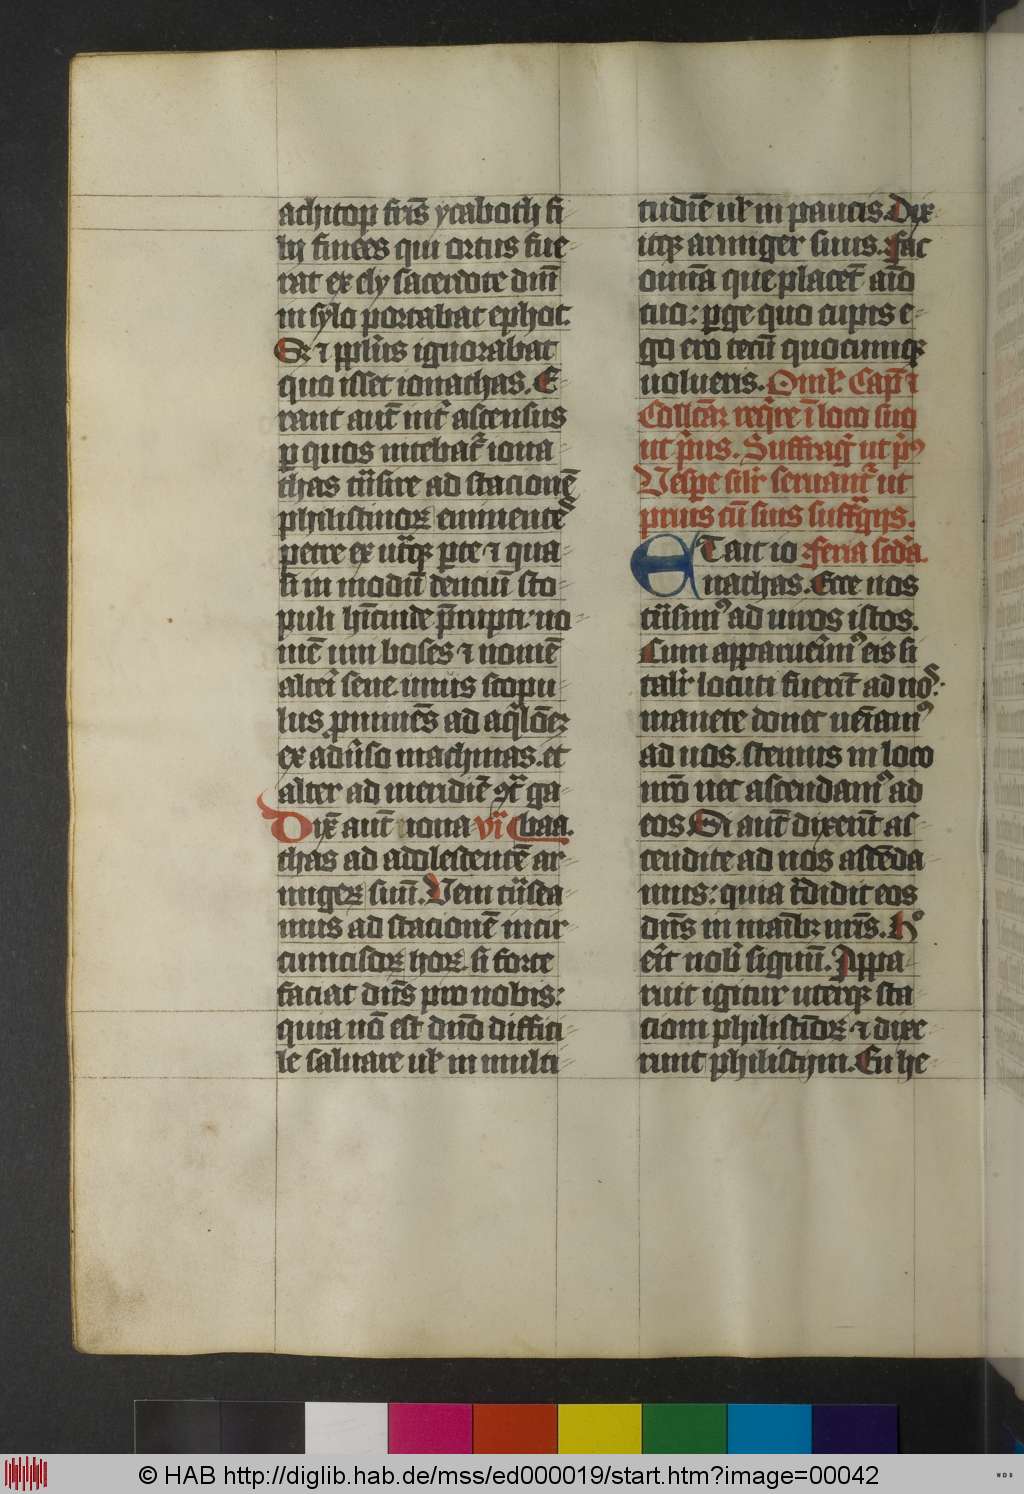 achitop fr̄is ycaboth fi
lij finees qui ortus fue
rat ex ely sacerdote dn̄i
in sylo portabat ephot.
S₎ ⁊ ppl̄us ignorabat
quo isset ionathas. E
rant aut̄ int̄ ascensus
ꝑ quos nitebat᷑ iona
thas tn̄sire ad stacionē
philistinoꝝ eminentes
petre ex utͣqꝫ ꝑte ⁊ qua
si in modū denciū sco
puli hīcinde p̄rupti: no
mē uni boses ⁊ nomē
alteri sene. unus scopu
lus ꝓminēs ad aq̇lōeꝫ
ex adūso machinas. et
alter ad meridiē ꝯtͣ ga
Dix̄ aut̄ iona vi᷑ baa.
thas ad adolescentē ar
migeꝝ suū. Veni tn̄sea
mus ad stacionē incir
cumcisoꝝ hoꝝ. si forte
faciat dn̄s pro nobis:
quia nō est dn̄o diffici
le saluare ul̄ in multi
tudīe ul̄ in paucis. Dix
itqꝫ armiger suus. Fac
omīa que placēt aīo
tuo: ꝑge quo cupis e
go ero tecū quocumqꝫ
uolueris. Oml̄. Cap̄ ⁊
Collcāꝝ reqͥre ī loco suo
ut pͥus. Suffraḡ ut pͥꝰ
Vespe sil̄r seruant᷑ ut
prius cū suis suffͣgijs.
ETait io Feria scd̄a.
nathas. Ecce nos
tn̄simꝰ ad uiros istos.
Cum apparuerimꝰ eis si
talit̄ locuti fuerīt ad nos:
manete donec ueīamꝰ
ad uos. stemus in loco
nr̄o nec ascendamꝰ ad
eos. Si aut̄ dixerīt as
cendite ad nos ascēda
mus: quia t̄didit eos
dn̄s in manibꝫ nr̄is. hͦ
erit nob̄ signū. Appa
ruit igitur uterqꝫ sta
cioni philistīoꝝ ⁊ dixe
runt philistijm. En he
© HAB http://diglib.hab.de/mss/ed000019/start.htm?image=00042